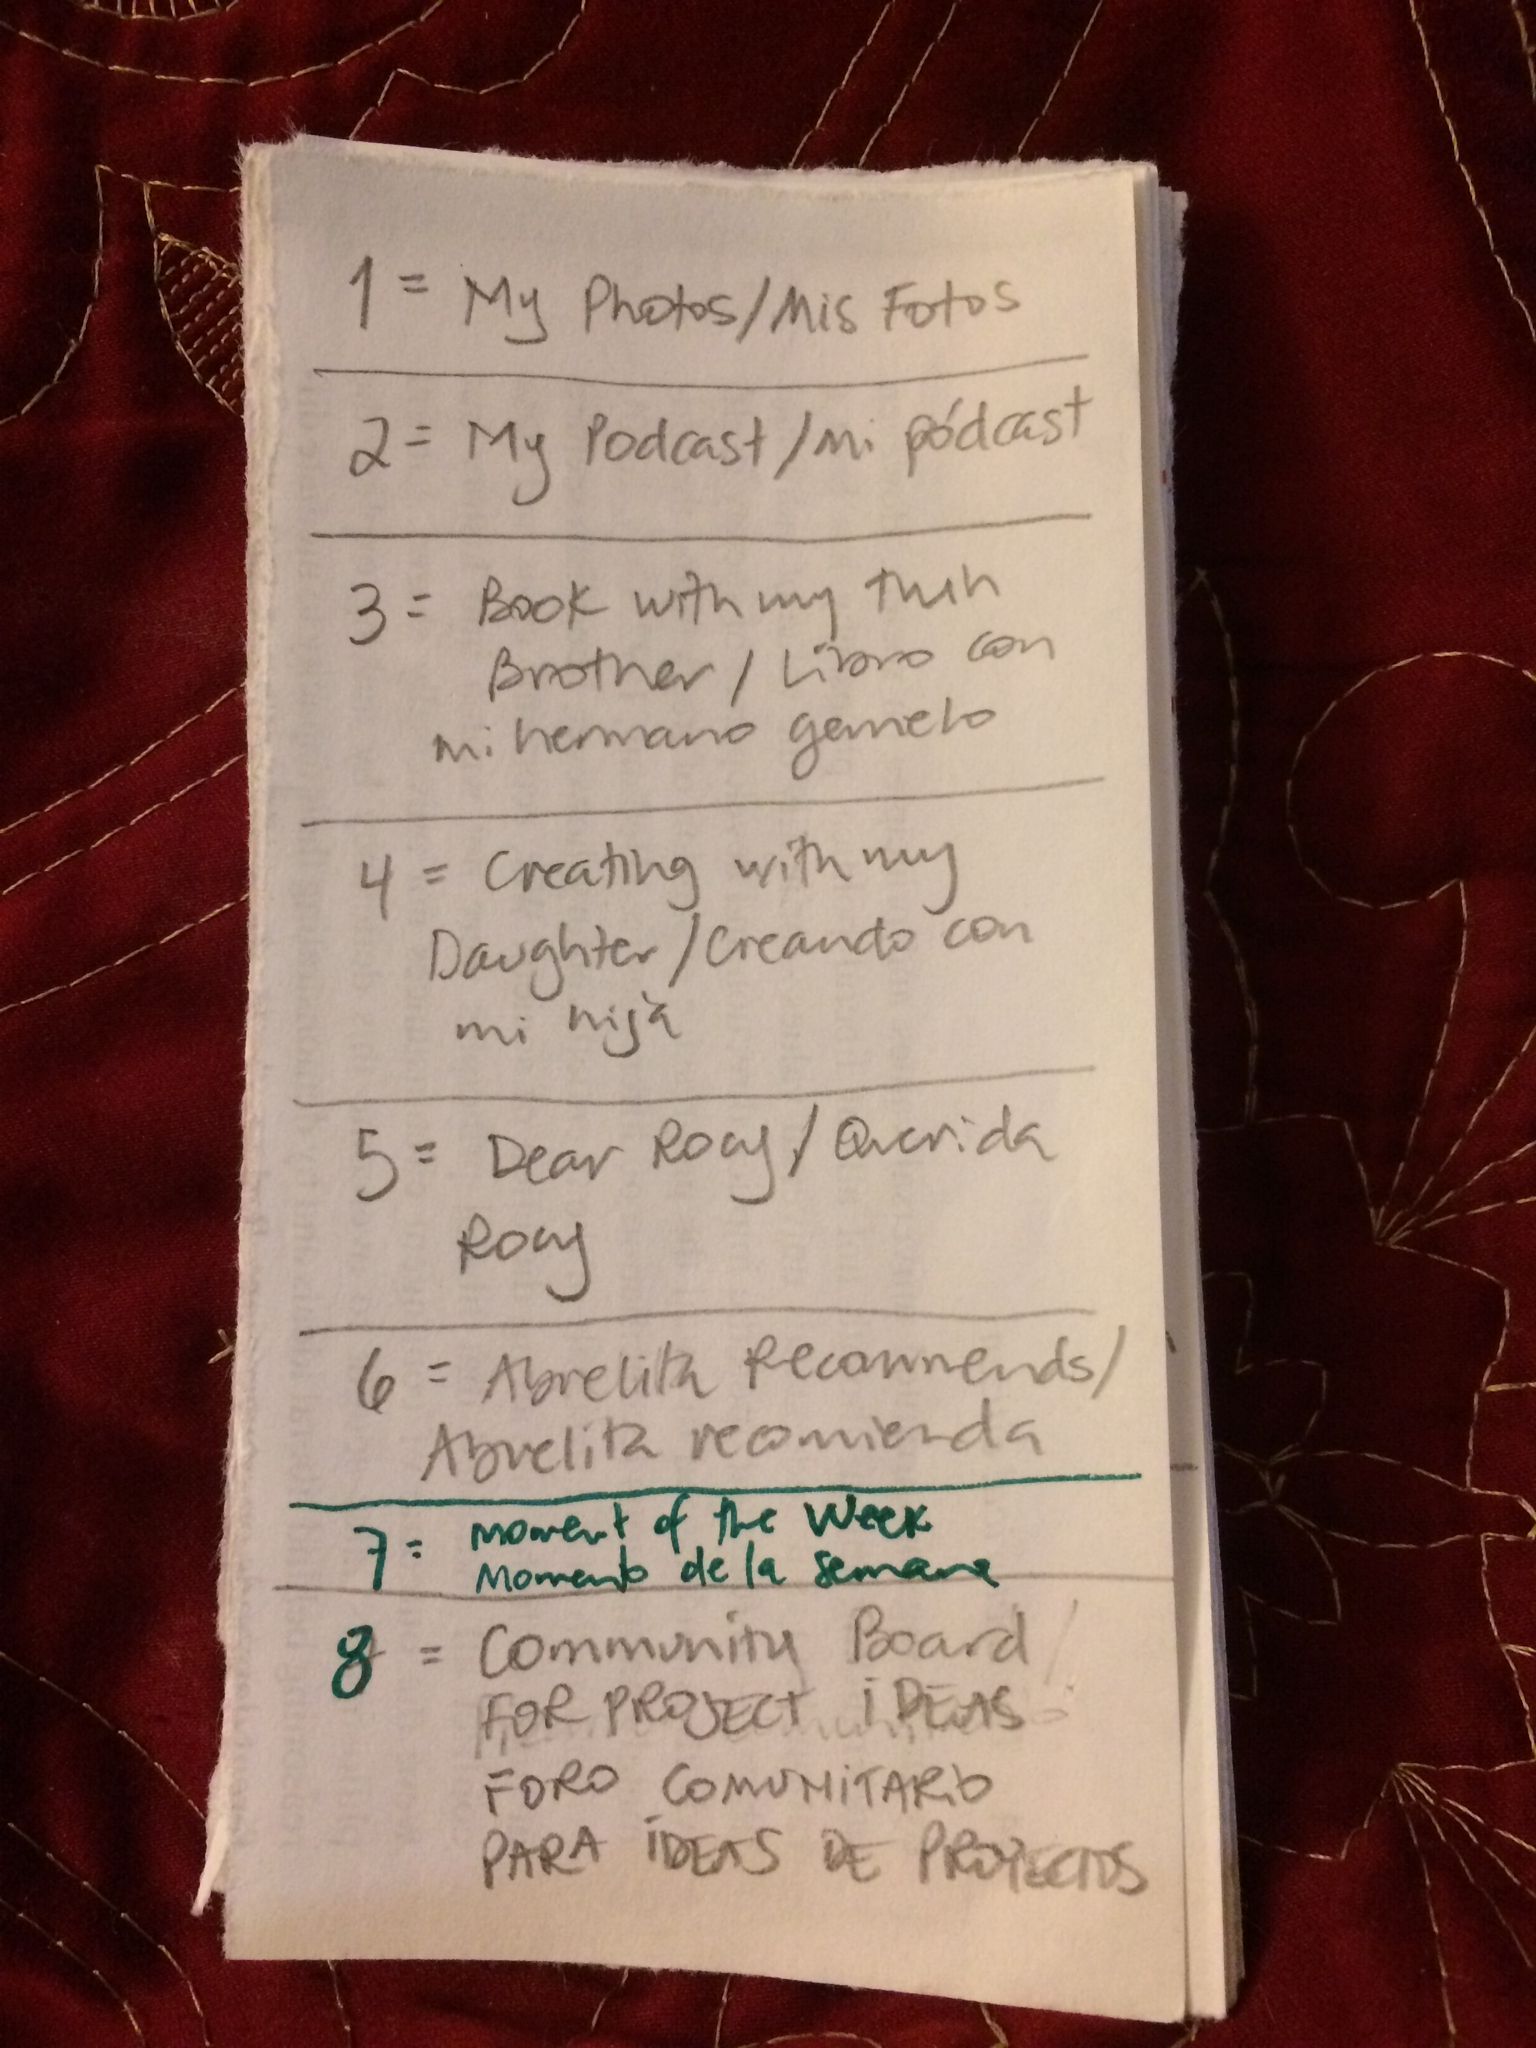 1 = My Photos/Mis Fotos
2 = My Podcast/mi pódcast
3 = Book with my twin
Brother/Libro con
mi hermano gemelo
4 = Creating with my
Daughter/Creando con
mi hija
5 = Dear Rocy/Querida
Rocy
6 = Abuelita Recommends/
Abuelita recomienda
7 = Moment of the Week
Momento de la semana
8 = Community Board/
FOR PROJECT IDEAS
FORO COMUNITARIO
PARA IDEAS DE PROYECTOS